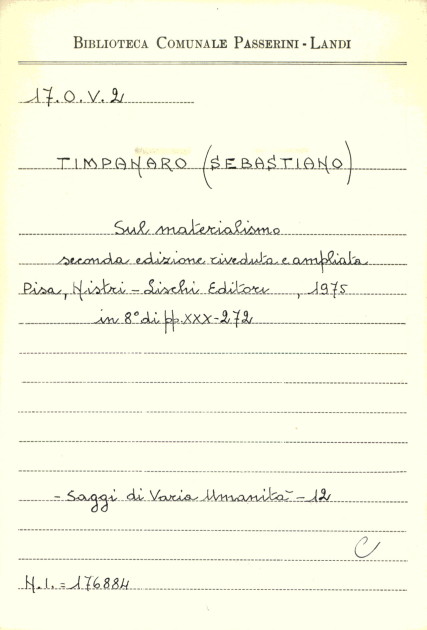 BIBLIOTECA COMUNALE PASSERINI - LANDI
17.O.V.2
TIMPANARO (SEBASTIANO)
Sul materialismo
seconda edizione riveduta e ampliata
Pisa, Nistri - Lischi Editori , 1975
in 8° di pp. XXX-272
- Saggi di Varia Umanità - 12
C
N.I. = 176884